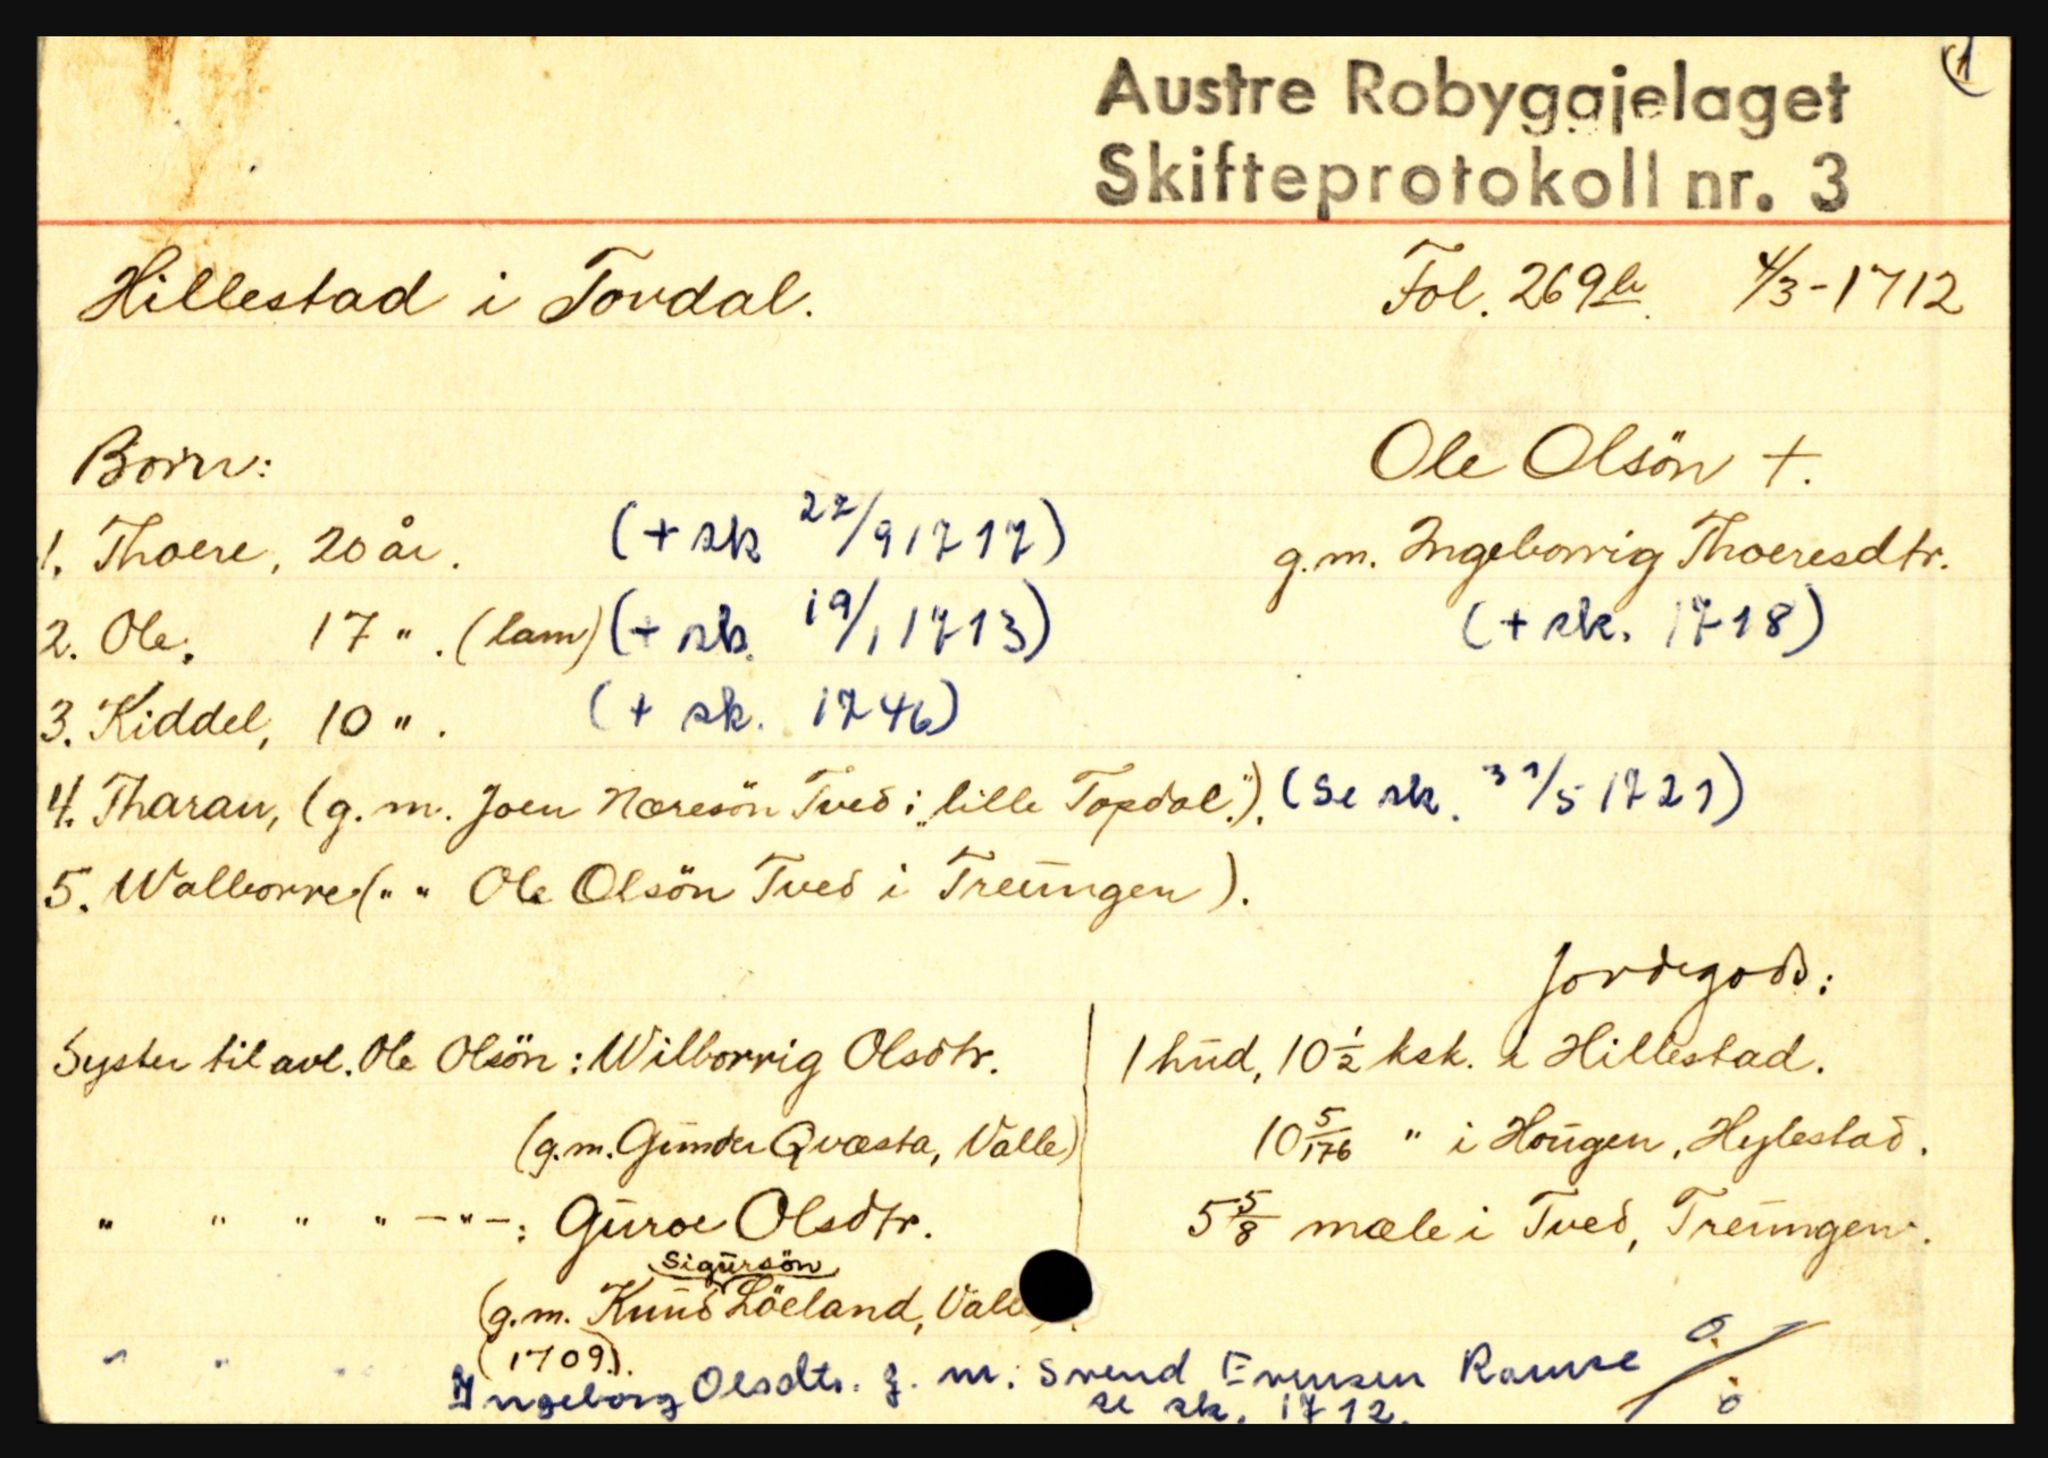 Austre Robyggjelaget
Skifteprotokoll nr. 3
Hillestad i Tovdal. Fol. 269b. 4/3-1712
Born: Ole Olsön +.
1. Thoere, 20 år. (+ sk 22/9 1717) g.m. Ingeborrig Thoeresdtr.
2. Ole, 17 " . (lam) (+ sk. 19/1 1713) (+ sk. 1718)
3. Kiddel, 10 " . (+ sk. 1746)
4. Tharan, (g.m. Joen Næresön Tved i „lille Topdal"). (Se sk. 31/5 1721)
5. Walborre (" " Ole Olsön Tved i Treungen).
Jordegods:
Syster til avl. Ole Olsön: Wilborrig Olsdtr. 1 hud, 10 1/2 ksk. i Hillestad.
(g.m. Gunder Qvæsta, Valle) 10 5/176 " i Hougen, Hylestad.
" " " " —"—: Guroe Olsdtr. 5 5/8 mæle i Tved, Treungen.
Sigursön
(g.m. Knud Löeland,
(1709).
" " " Ingeborg Olsdtr. g.m. Svend Evensen
se sk. 1712.